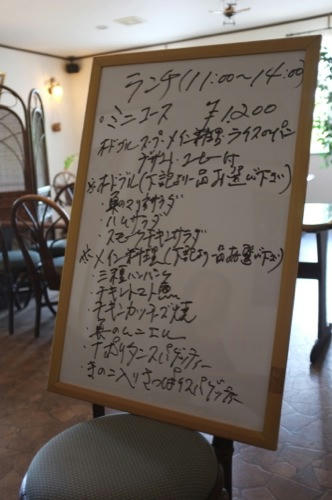 ランチ(11:00〜14:00)
◦ミニコース ¥1,200
オードブル スープ メイン料理 ライスorパン
デザート コーヒー付
※オードブル(下記より一品お選び下さい)
・魚のマリネサラダ
・ハムサラダ
・スモークチキンサラダ
※メイン料理(下記より一品お選び下さい)
・三種ハンバーグ
・チキントマト煮
・チキンカツチーズ焼
・ナポリタンスパゲッティー
・きのこ入りさっぱりスパゲッティー